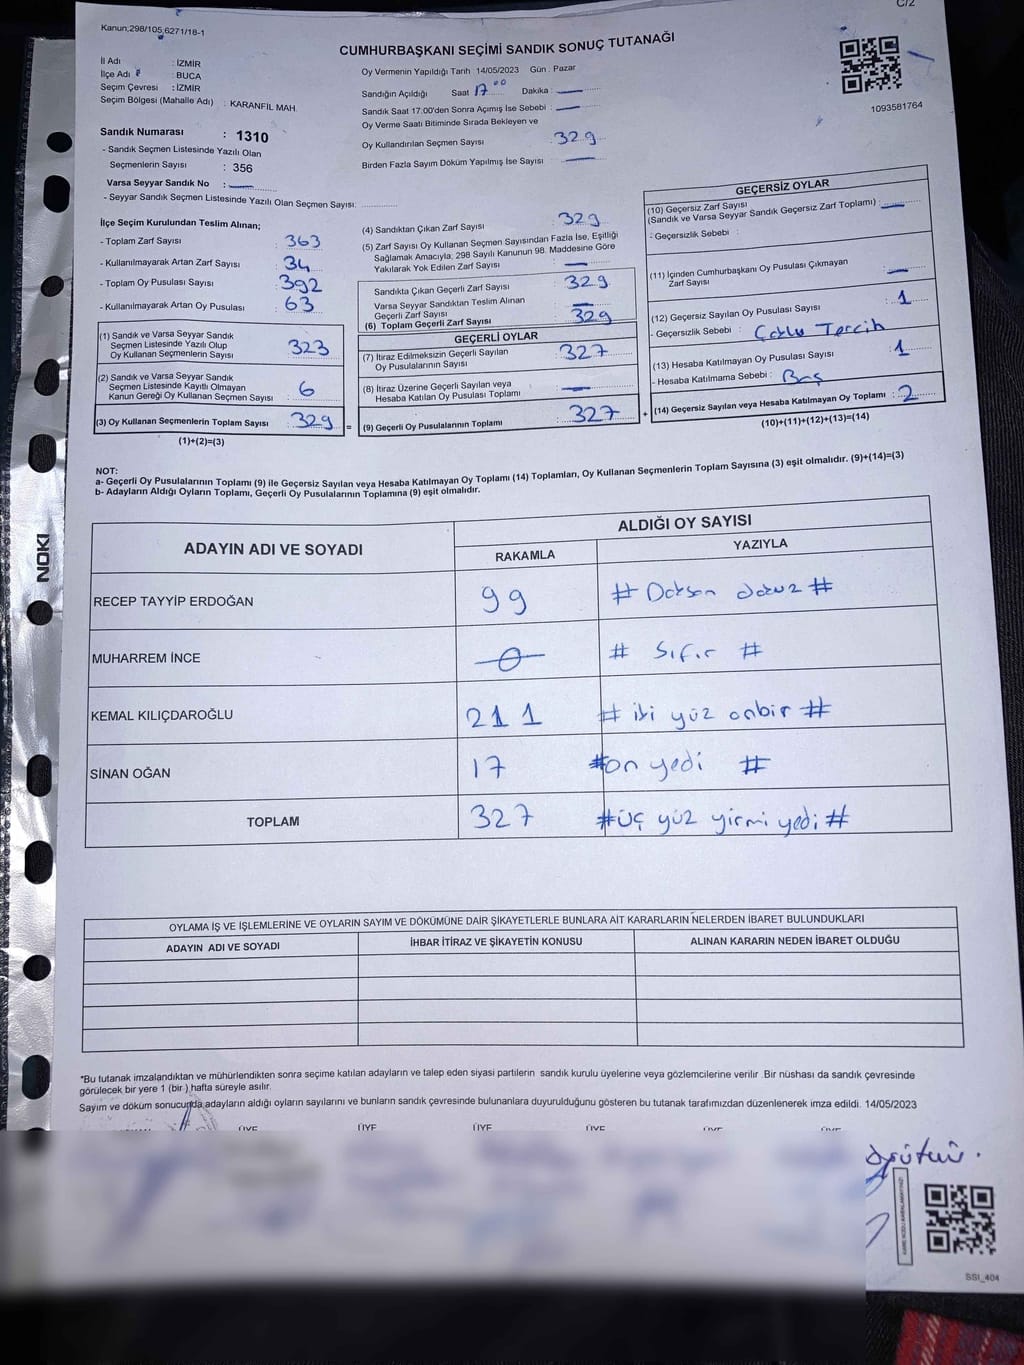 C/2
Kanun,298/105,6271/18-1
CUMHURBAŞKANI SEÇİMİ SANDIK SONUÇ TUTANAĞI
İl Adı : İZMİR
İlçe Adı : BUCA
Seçim Çevresi : İZMİR
Seçim Bölgesi (Mahalle Adı) : KARANFİL MAH.
Sandık Numarası : 1310
- Sandık Seçmen Listesinde Yazılı Olan
Seçmenlerin Sayısı : 356
Varsa Seyyar Sandık No :
- Seyyar Sandık Seçmen Listesinde Yazılı Olan Seçmen Sayısı:
Oy Vermenin Yapıldığı Tarih 14/05/2023 Gün . Pazar
Sandığın Açıldığı Saat 17 00 Dakika :
Sandık Saat 17.00'den Sonra Açımış İse Sebebi :
Oy Verme Saati Bitiminde Sırada Bekleyen ve
Oy Kullandırılan Seçmen Sayısı 329
Birden Fazla Sayım Döküm Yapılmış İse Sayısı
1093581764
İlçe Seçim Kurulundan Teslim Alınan;
- Toplam Zarf Sayısı : 363
- Kullanılmayarak Artan Zarf Sayısı : 34
- Toplam Oy Pusulası Sayısı : 392
- Kullanılmayarak Artan Oy Pusulası : 63
(1) Sandık ve Varsa Seyyar Sandık
Seçmen Listesinde Yazılı Olup
Oy Kullanan Seçmenlerin Sayısı : 323
(2) Sandık ve Varsa Seyyar Sandık
Seçmen Listesinde Kayıtlı Olmayan
Kanun Gereği Oy Kullanan Seçmen Sayısı : 6
(3) Oy Kullanan Seçmenlerin Toplam Sayısı : 329
(1)+(2)=(3)
=
(4) Sandıktan Çıkan Zarf Sayısı : 329
(5) Zarf Sayısı Oy Kullanan Seçmen Sayısından Fazla İse, Eşitliği
Sağlamak Amacıyla, 298 Sayılı Kanunun 98. Maddesine Göre
Yakılarak Yok Edilen Zarf Sayısı :
Sandıkta Çıkan Geçerli Zarf Sayısı : 329
Varsa Seyyar Sandıktan Teslim Alınan
Geçerli Zarf Sayısı
(6) Toplam Geçerli Zarf Sayısı 329
GEÇERLİ OYLAR
(7) İtiraz Edilmeksizin Geçerli Sayılan
Oy Pusulalarının Sayısı : 327
(8) İtiraz Üzerine Geçerli Sayılan veya
Hesaba Katılan Oy Pusulası Toplamı :
(9) Geçerli Oy Pusulalarının Toplamı : 327
+
GEÇERSİZ OYLAR
(10) Geçersiz Zarf Sayısı
(Sandık ve Varsa Seyyar Sandık Geçersiz Zarf Toplamı) :
- Geçersizlik Sebebi :
(11) İçinden Cumhurbaşkanı Oy Pusulası Çıkmayan
Zarf Sayısı :
(12) Geçersiz Sayılan Oy Pusulası Sayısı : 1
- Geçersizlik Sebebi : Çoklu Tercih
(13) Hesaba Katılmayan Oy Pusulası Sayısı : 1
- Hesaba Katılmama Sebebi : Boş
(14) Geçersiz Sayılan veya Hesaba Katılmayan Oy Toplamı : 2
(10)+(11)+(12)+(13)=(14)
NOT:
a- Geçerli Oy Pusulalarının Toplamı (9) ile Geçersiz Sayılan veya Hesaba Katılmayan Oy Toplamı (14) Toplamları, Oy Kullanan Seçmenlerin Toplam Sayısına (3) eşit olmalıdır. (9)+(14)=(3)
b- Adayların Aldığı Oyların Toplamı, Geçerli Oy Pusulalarının Toplamına (9) eşit olmalıdır.
NOKI
ADAYIN ADI VE SOYADI
ALDIĞI OY SAYISI
RAKAMLA YAZIYLA
RECEP TAYYİP ERDOĞAN 99 # Doksan dokuz #
MUHARREM İNCE 0 # Sıfır #
KEMAL KILIÇDAROĞLU 211 # iki yüz onbir #
SİNAN OĞAN 17 # on yedi #
TOPLAM 327 # üç yüz yirmi yedi #
OYLAMA İŞ VE İŞLEMLERİNE VE OYLARIN SAYIM VE DÖKÜMÜNE DAİR ŞİKAYETLERLE BUNLARA AİT KARARLARIN NELERDEN İBARET BULUNDUKLARI
ADAYIN ADI VE SOYADI İHBAR İTİRAZ VE ŞİKAYETİN KONUSU ALINAN KARARIN NEDEN İBARET OLDUĞU
*Bu tutanak imzalandıktan ve mühürlendikten sonra seçime katılan adayların ve talep eden siyasi partilerin sandık kurulu üyelerine veya gözlemcilerine verilir .Bir nüshası da sandık çevresinde
görülecek bir yere 1 (bir ) hafta süreyle asılır.
Sayım ve döküm sonucunda adayların aldığı oyların sayılarını ve bunların sandık çevresinde bulunanlara duyurulduğunu gösteren bu tutanak tarafımızdan düzenlenerek imza edildi. 14/05/2023
ÜYE ÜYE ÜYE ÜYE ÜYE ÜYE
SSI_404